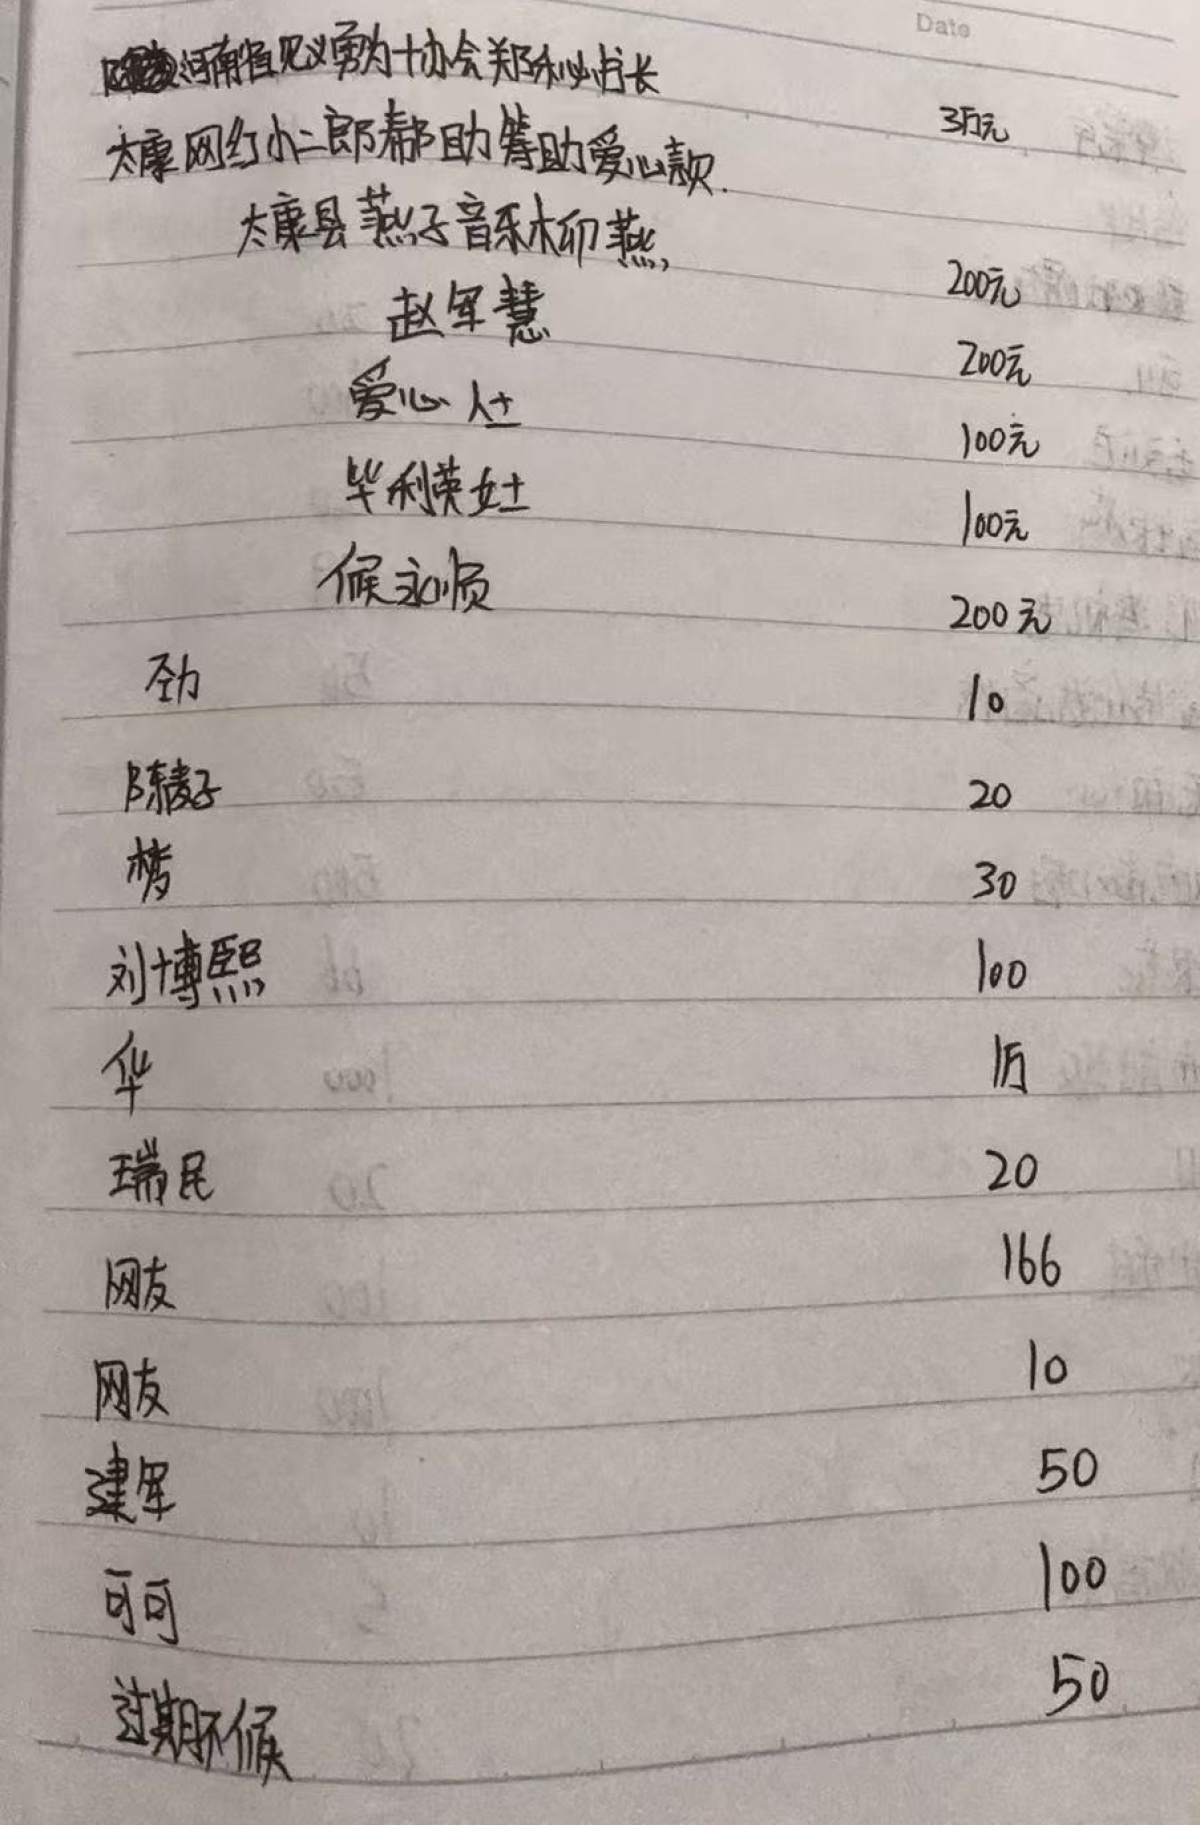 Date
河南省见义勇为协会郑秘书长 3万元
太康网红小二郎帮助筹助爱心款.
太康县燕子音乐柳燕 200元
赵军慧 200元
爱心人士 100元
毕利英女士 100元
候永顺 200元
劲 10
陈麦子 20
梦 30
刘博熙 100
华 1万
瑞民 20
网友 166
网友 10
建军 50
可可 100
过期不候 50